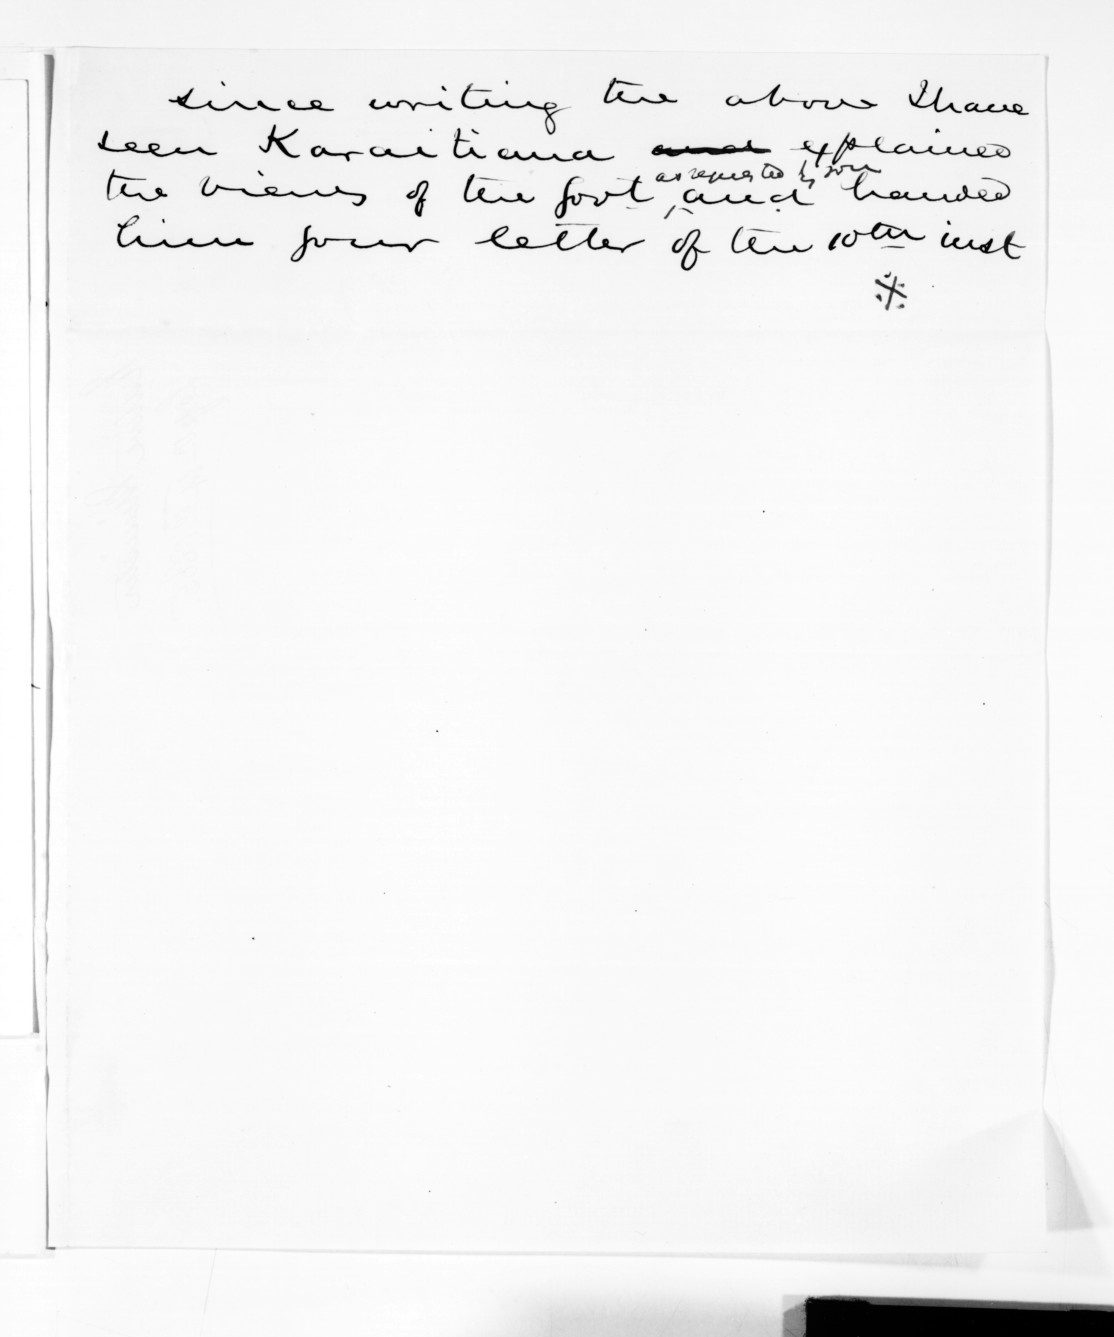 since writing the above I have
seen Karaitiana and explained
the views of the Govt as requested by you and handed
him your letter of the 10th inst